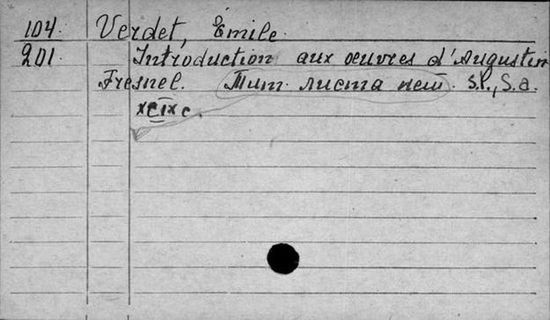 104. Verdet, Émile.
201. Introduction aux œuvres d'Augustin
Fresnel. Тит. листа нет. S.l., S.a.
xcix c.